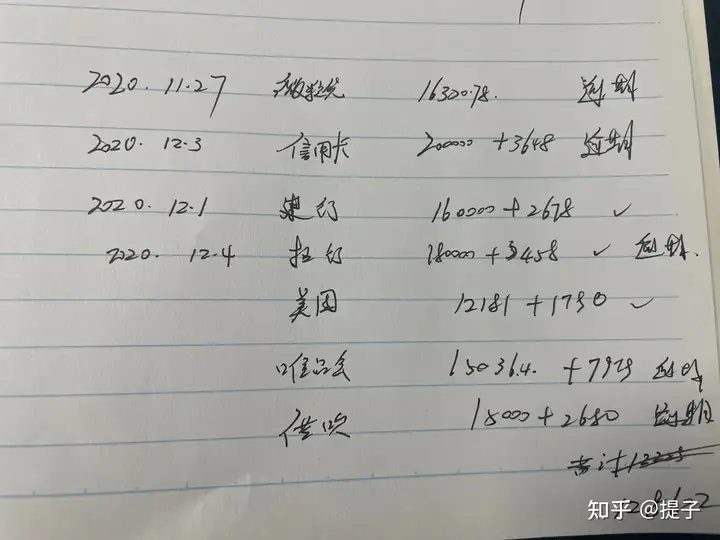 2020. 11.27 微粒贷 16320.78. 逾期
2020. 12.3 信用卡 200000 + 3648 逾期
2020. 12.1 建行 160000 + 2678 ✓
2020. 12.4 招行 180000 + 3458 ✓ 逾期.
美团 12181 + 1790 ✓
唯品会 15036.4. + 7929 逾期
借呗 15000 + 2680 逾期
共计
知乎 @提子